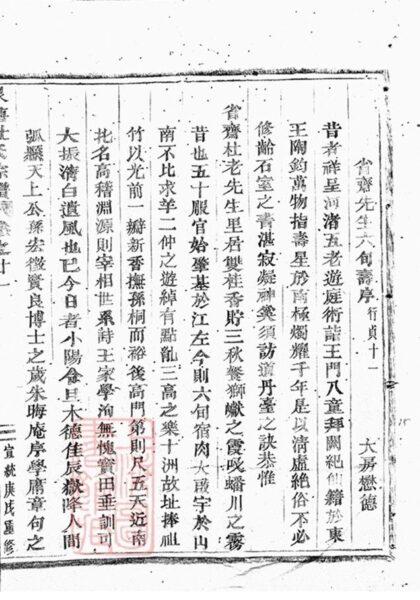 省齋先生六旬壽序 行貞十一
大房懋德
昔者祥星河渚五老遊庭術詣王門八童拜闕絕仙籍於東
王陶鈞萬物指壽星於南極燭耀千年是以清虛絕俗不必
修齡石室之青湛寂凝神奚須訪道丹臺之訣恭惟
省齋杜老先生里居雙桂香貯三秋餐獅巘之霞吸蟠川之霧
昔也五十服官始肇基於江左今則六旬宿肉大啟宇於山
南不比求羊二仲之遊綽有點亂三高之樂十洲故址捧祖
竹以光前一瓣新香撫孫桐而裕後高門第則尺五天近南
北名高稽淵源則宰相世系詩王家學洵無愧寶田垂訓可
大振清白遺風也已今日者小陽食旦木德佳辰嶽降人間
弧懸天上公孫宏徵賢良博士之歲朱晦庵序學庸章句之
宣統庚戌重修